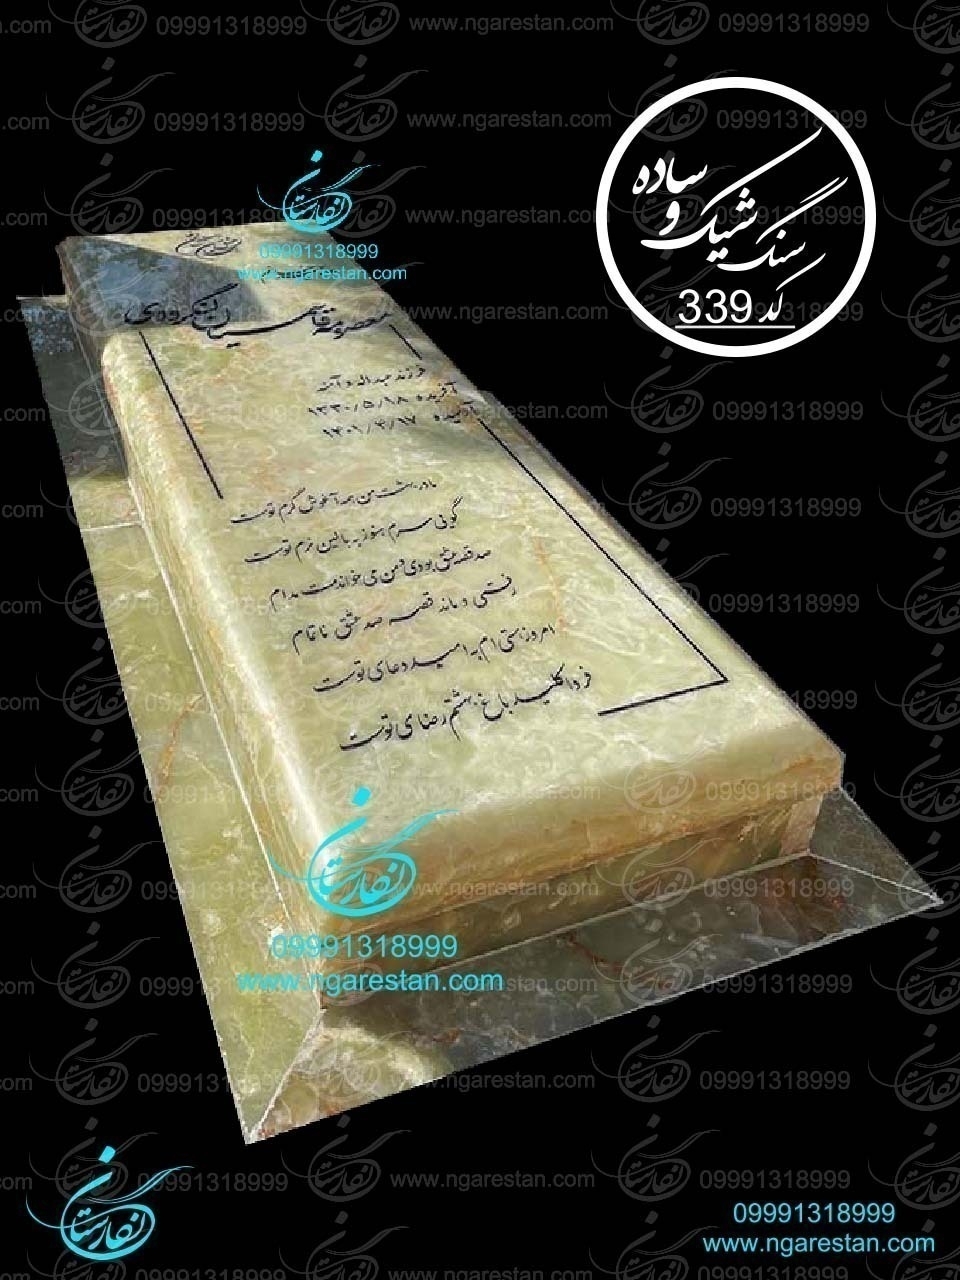 سنگ شیک و ساده
کد 339
نگارستان
09991318999
www.ngarestan.com
معصومه قاسمیان لنگرودی
فرزند عبداله و آمنه
آفریده ۱۳۳۰/۵/۱۸
۱۴۰۱/۳/۱۷
مادر بهشت من همه آغوش گرم توست
گوئی سرم هنوز به بالین نرم توست
صد قصه عشق بودی و من می خواندمت مدام
رفتی و ماند قصه صد عشق ناتمام
امروز هستی ام به امید دعای توست
فردا کلید باغ بهشتم رضای توست
نگارستان
09991318999
www.ngarestan.com
نگارستان
09991318999
www.ngarestan.com